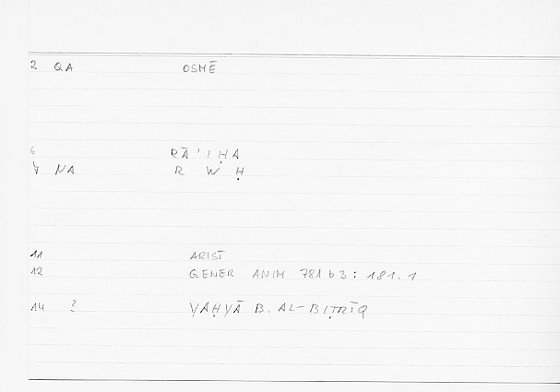 2 QA OSMĒ
6 RĀ'IḤA
7 NA R W Ḥ
11 ARIST
12 GENER ANIM 781b3: 181.1
14 ? YAḤYĀ B. AL-BIṬRĪQ